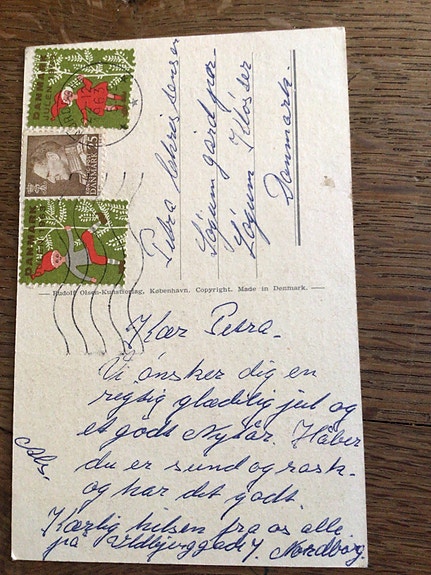 DANMARK
DANMARK 25
DANMARK
Petra
Løgumgårde
Løgum Kloster
Danmark.
Rudolf Olsen-Kunstforlag, København. Copyright. Made in Denmark.
Kær Petra.
Vi ønsker dig en
rigtig glædelig jul og
et godt Nytår. Håber
du er sund og rask.
og har det godt.
Kærlig hilsen fra os alle
på 7. Nordborg.